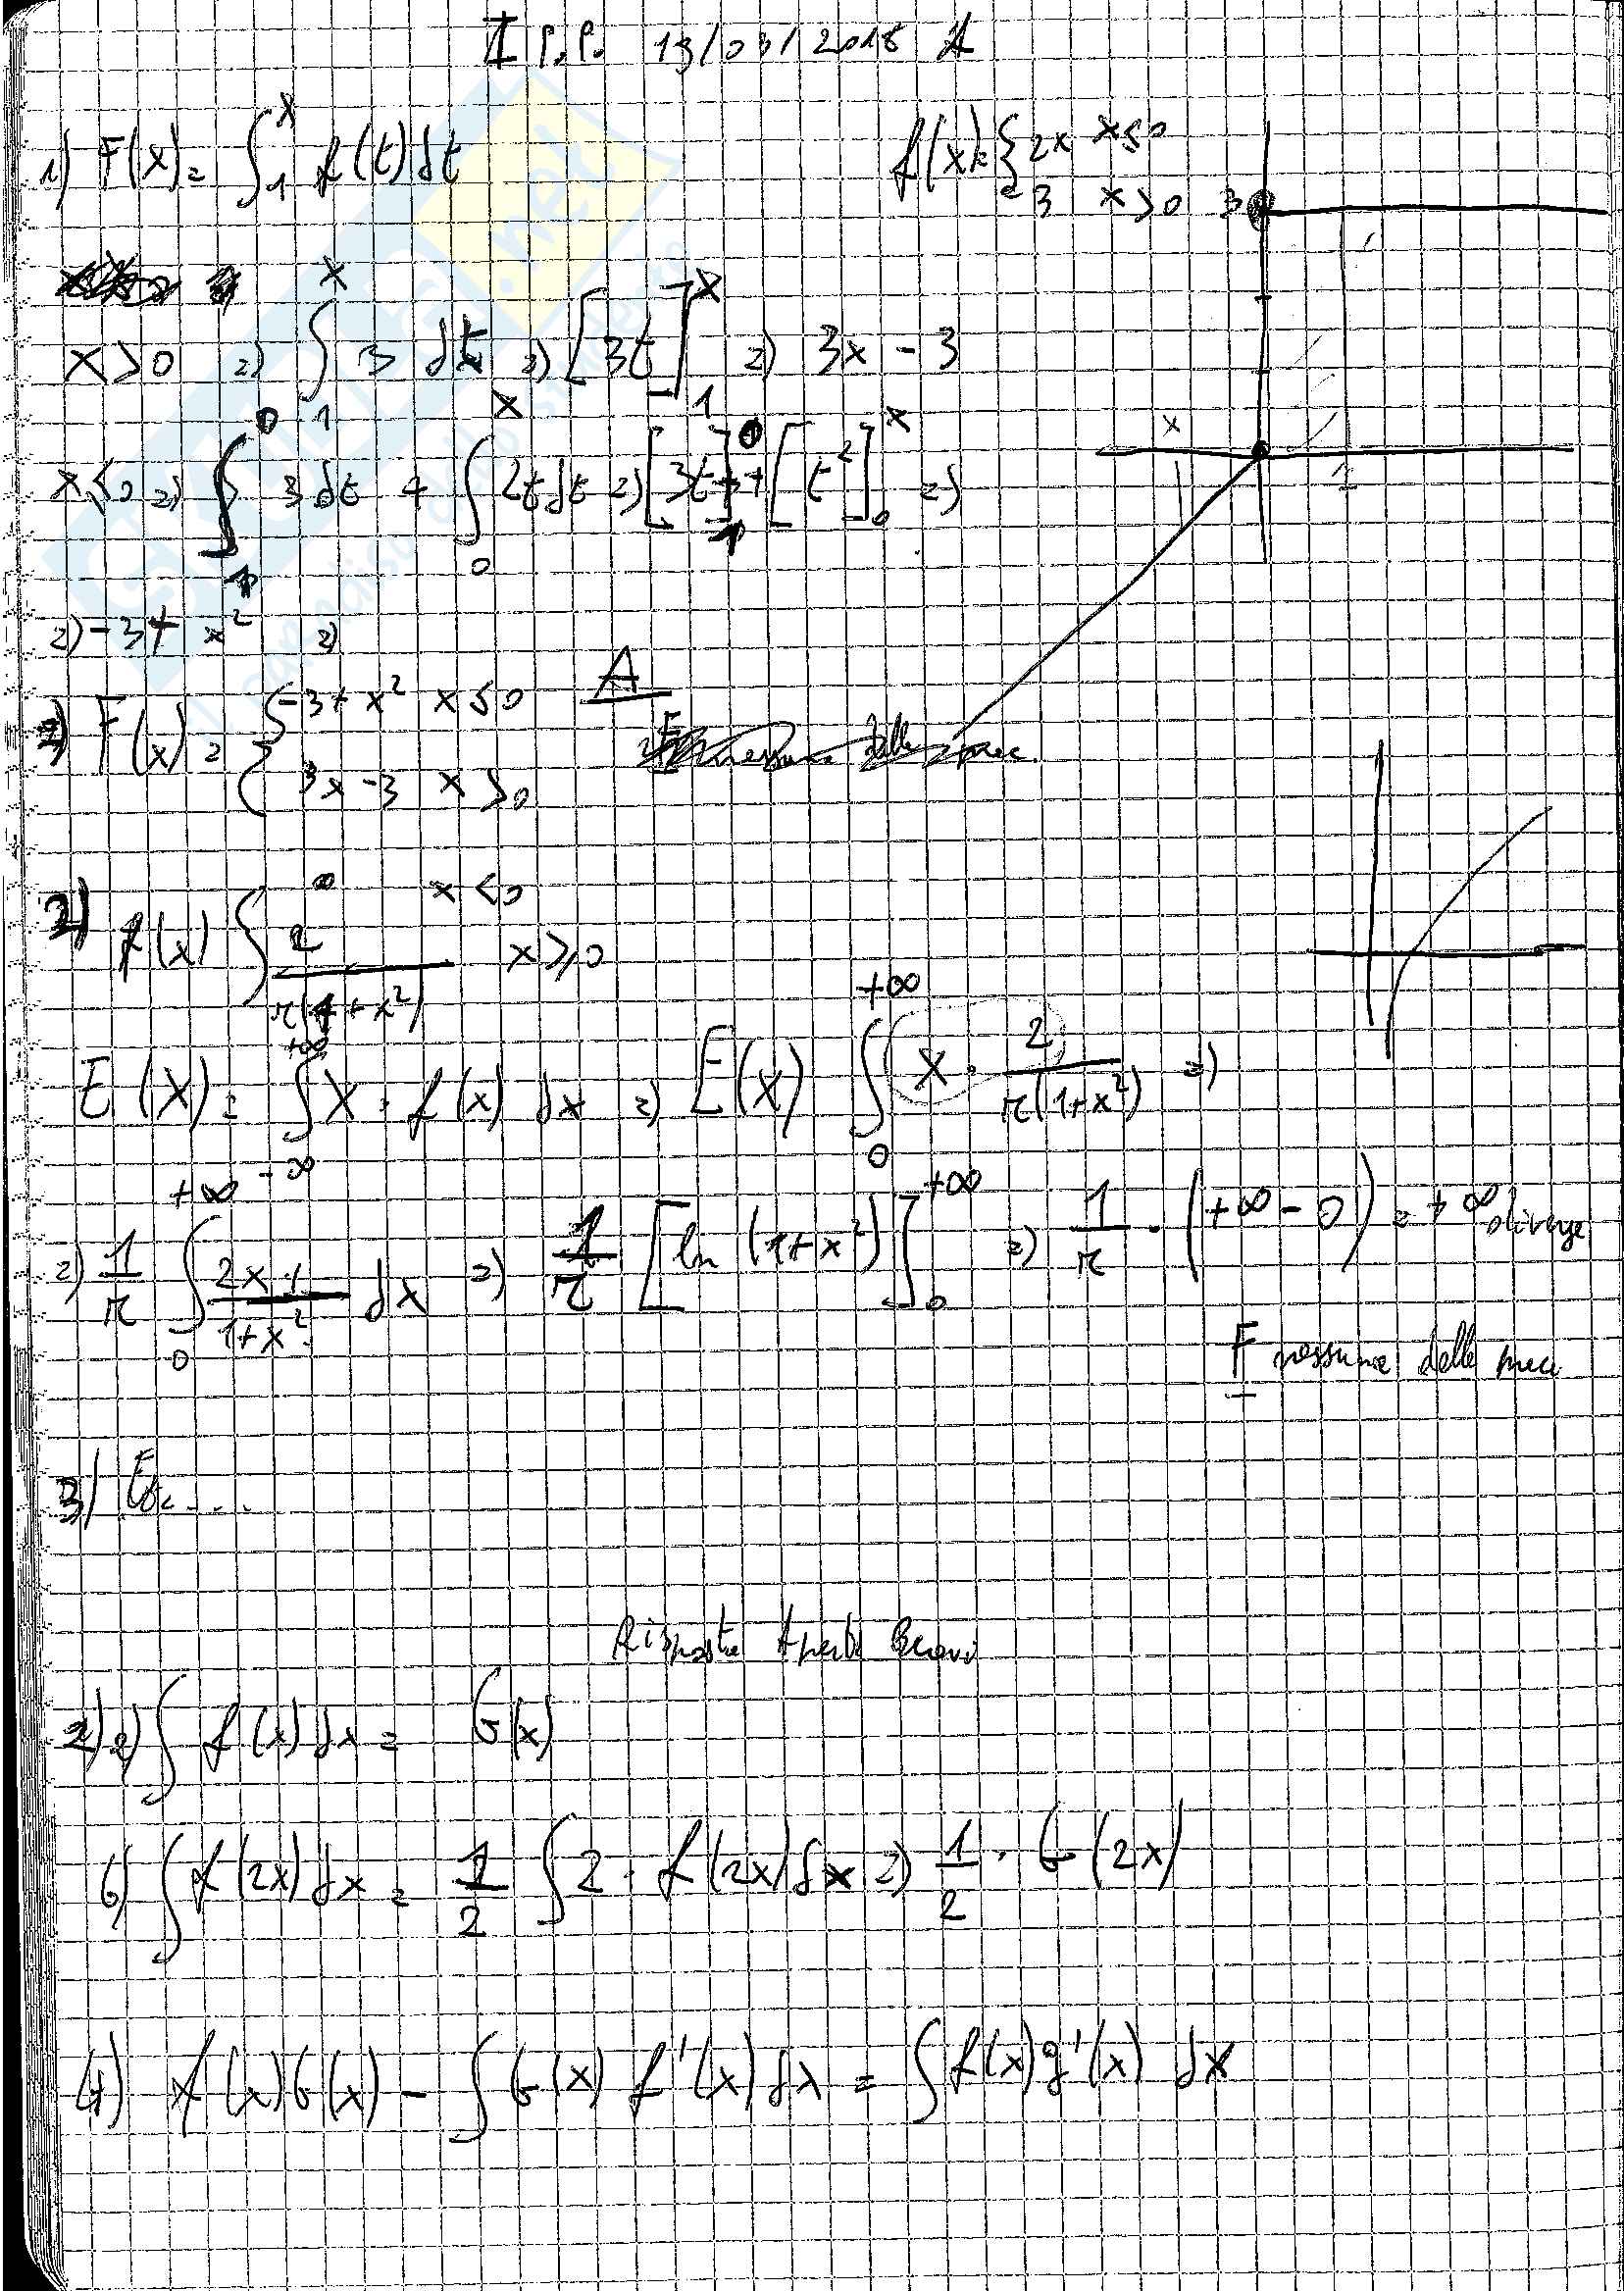 I P.P. 13/03/2018 A
1) F(x) = ∫_1^x f(t) dt
f(x) = { 2x x≤0
3 x>0
3
x>0 => ∫_1^x 3 dt => [3t]_1^x => 3x - 3
x
1
x≤0 => ∫_1^0 3 dt + ∫_0^x 2t dt => [3t]_1^0 + [t²]_0^x =>
=> -3 + x² =>
=> F(x) = { -3 + x² x≤0
3x - 3 x>0
A
2) f(x) { 0 x<0
2/π(1+x²) x≥0
E(X) = ∫_-∞^+∞ x · f(x) dx => E(X) ∫_0^+∞ x · 2/π(1+x²) =>
=> 1/π ∫_0^+∞ 2x/1+x² dx => 1/π [ln (1+x²)]_0^+∞ => 1/π · (+∞ - 0) = +∞ diverge
F nessuna delle prec
3)
Risposte Aperte Brevi
2) a) ∫ f(x) dx = G(x)
b) ∫ f(2x) dx = 1/2 ∫ 2 · f(2x) dx => 1/2 · G(2x)
4) f(x)G(x) - ∫ G(x) f'(x) dx = ∫ f(x) g'(x) dx